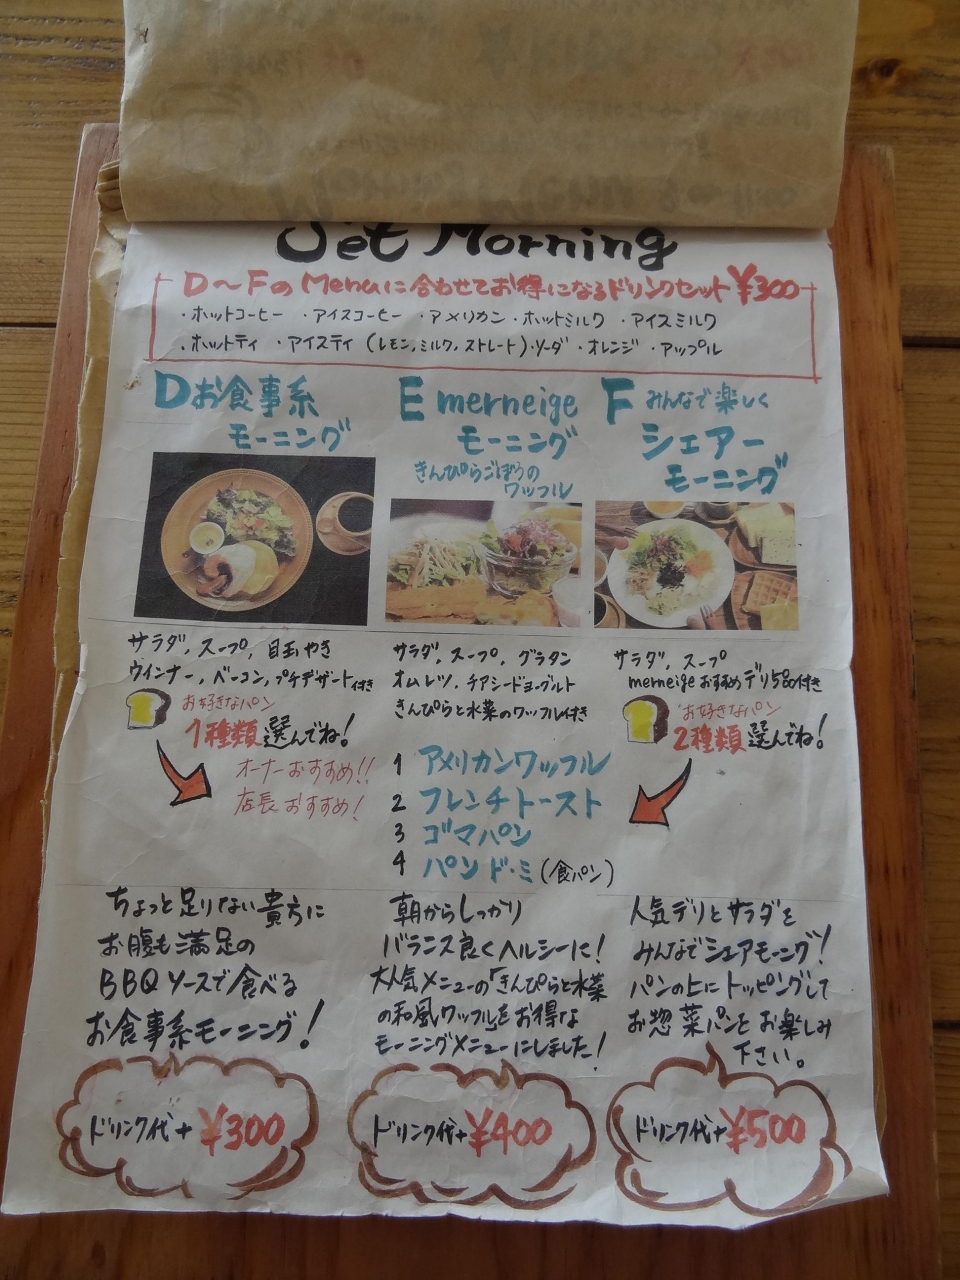 Set Morning
D〜FのMenuに合わせてお得になるドリンクセット¥300
・ホットコーヒー ・アイスコーヒー ・アメリカン・ホットミルク ・アイスミルク
・ホットティ ・アイスティ(レモン,ミルク,ストレート)・ソーダ・オレンジ・アップル
Dお食事系
モーニング
E merneige
モーニング
きんぴらごぼうの
ワッフル
F みんなで楽しく
シェアー
モーニング
サラダ,スープ,目玉やき
ウインナー,ベーコン,プチデザート付き
お好きなパン
1種類選んでね!
オーナーおすすめ!!
店長おすすめ!
サラダ,スープ,グラタン
オムレツ,チアシードヨーグルト
きんぴらと水菜のワッフル付き
サラダ,スープ
merneigeおすすめデリ5品付き
お好きなパン
2種類選んでね!
1 アメリカンワッフル
2 フレンチトースト
3 ゴマパン
4 パンド・ミ(食パン)
ちょっと足りない貴方に
お腹も満足の
BBQソースで食べる
お食事系モーニング!
朝からしっかり
バランス良くヘルシーに!
大人気メニューの「きんぴらと水菜
の和風ワッフル」をお得な
モーニングメニューにしました!
人気デリとサラダを
みんなでシェアモーニング!
パンの上にトッピングして
お惣菜パンとお楽しみ
下さい。
ドリンク代+¥300
ドリンク代+¥400
ドリンク代+¥500